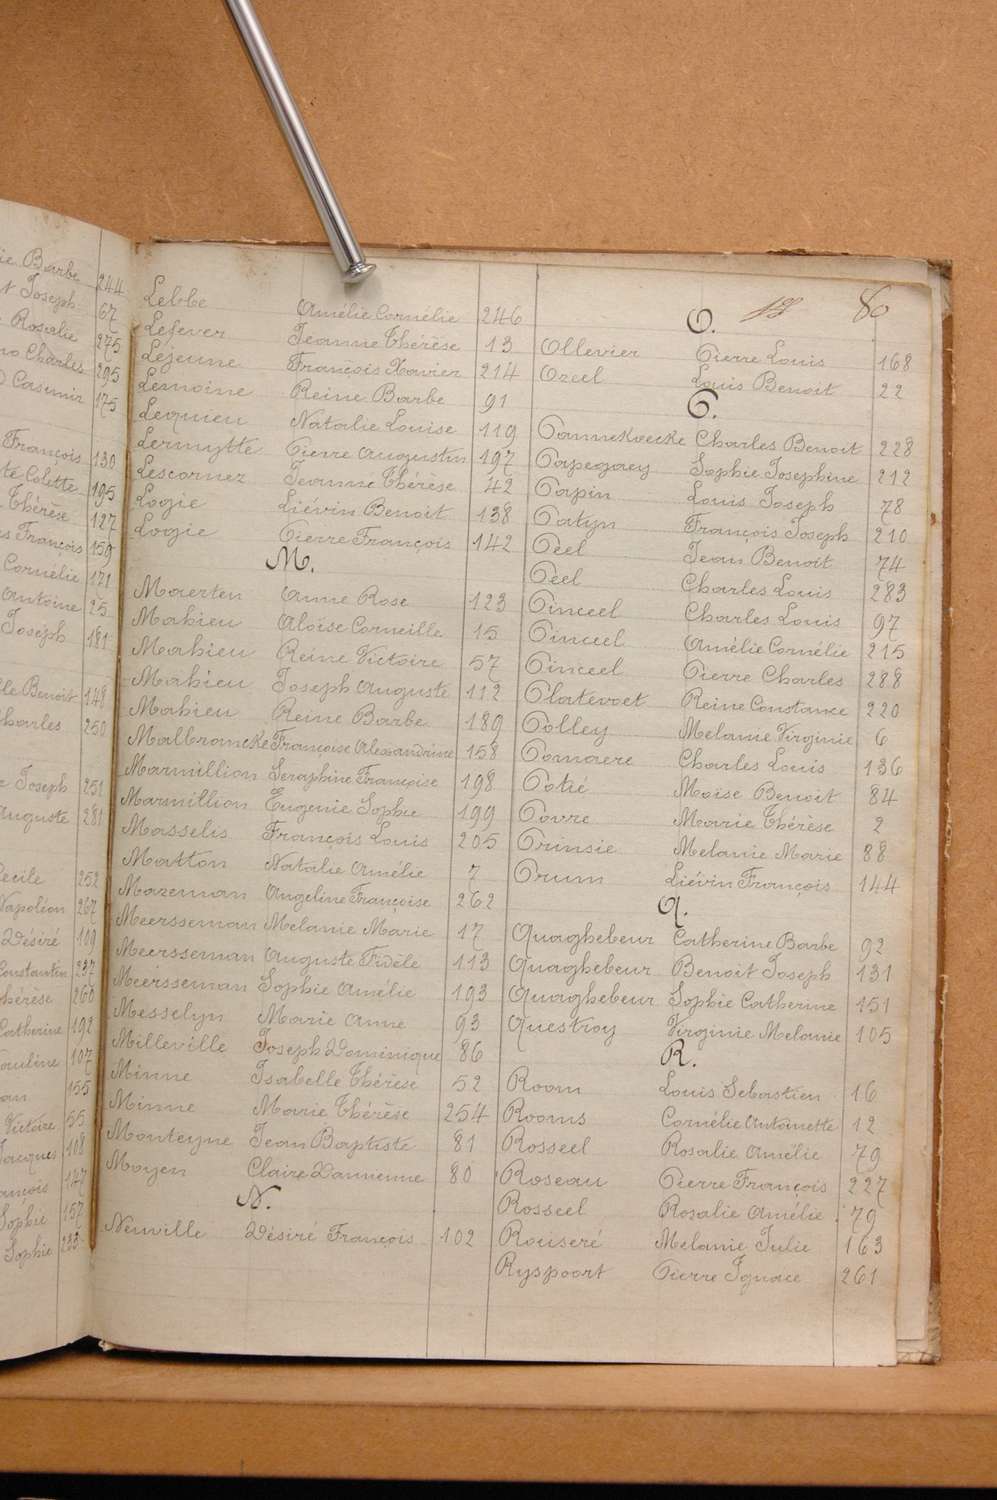 ie Barbe 244
t Joseph 67
Rosalie 275
no Charles 295
D Casimir 175
François 130
te Colette 195
Thérèse 127
es François 159
Cornélie 171
Antoine 25
Joseph 181
lle Benoit 148
Charles 250
e Joseph 251
Auguste 281
Cecile 252
Napoléon 267
Désiré 109
Constantin 237
Thérèse 260
Catherine 192
Pauline 107
an 155
Victoire 55
Jacques 118
ançois 147
Sophie 157
Sophie 233
Lebbe Amélie Cornélie 246
Lefever Jeanne Thérèse 13
Léjeune François Xavier 214
Lemoine Reine Barbe 91
Lequieu Natalie Louise 119
Lermytte Pierre Augustin 197
Lescornez Jeanne Thérèse 42
Logie Liévin Benoit 138
Logie Pierre François 142
M.
Maerten Anne Rose 123
Mahieu Aloïse Corneille 15
Mahieu Reine Victoire 57
Mahieu Joseph Auguste 112
Mahieu Reine Barbe 189
Malbrancke Françoise Alexandrine 158
Marmillion Seraphine Françoise 198
Marmillion Eugenie Sophie 199
Masselis François Louis 205
Matton Natalie Amélie 7
Mazeman Angeline Françoise 262
Meersseman Melanie Marie 17
Meersseman Auguste Fidèle 113
Meersseman Sophie Amélie 193
Messelyn Marie Anne 93
Milleville Joseph Dominique 86
Minne Isabelle Thérèse 52
Minne Marie Thérèse 254
Monteyne Jean Baptiste 81
Moyen Claire Damienne 80
N.
Neuville Désiré François 102
80
O.
Ollevier Pierre Louis 168
Ozeel Louis Benoit 22
P.
Pannekoecke Charles Benoit 228
Papegaey Sophie Josephine 212
Papin Louis Joseph 78
Patyn François Joseph 210
Péel Jean Benoit 74
Péel Charles Louis 283
Pinceel Charles Louis 97
Pinceel Amélie Cornélie 215
Pinceel Pierre Charles 288
Platevoet Reine Constance 220
Polley Melanie Virginie 6
Pomaere Charles Louis 136
Potié Moïse Benoit 84
Povre Marie Thérèse 2
Prinsie Melanie Marie 88
Prum Liévin François 144
Q.
Quaghebeur Catherine Barbe 92
Quaghebeur Benoit Joseph 131
Quaghebeur Sophie Catherine 151
Questroy Virginie Melanie 105
R.
Room Louis Sebastien 16
Rooms Cornélie Antoinette 12
Rosseel Rosalie Amélie 79
Roseau Pierre François 227
Rosseel Rosalie Amélie 79
Rouseré Melanie Julie 163
Ryspoort Pierre Ignace 261